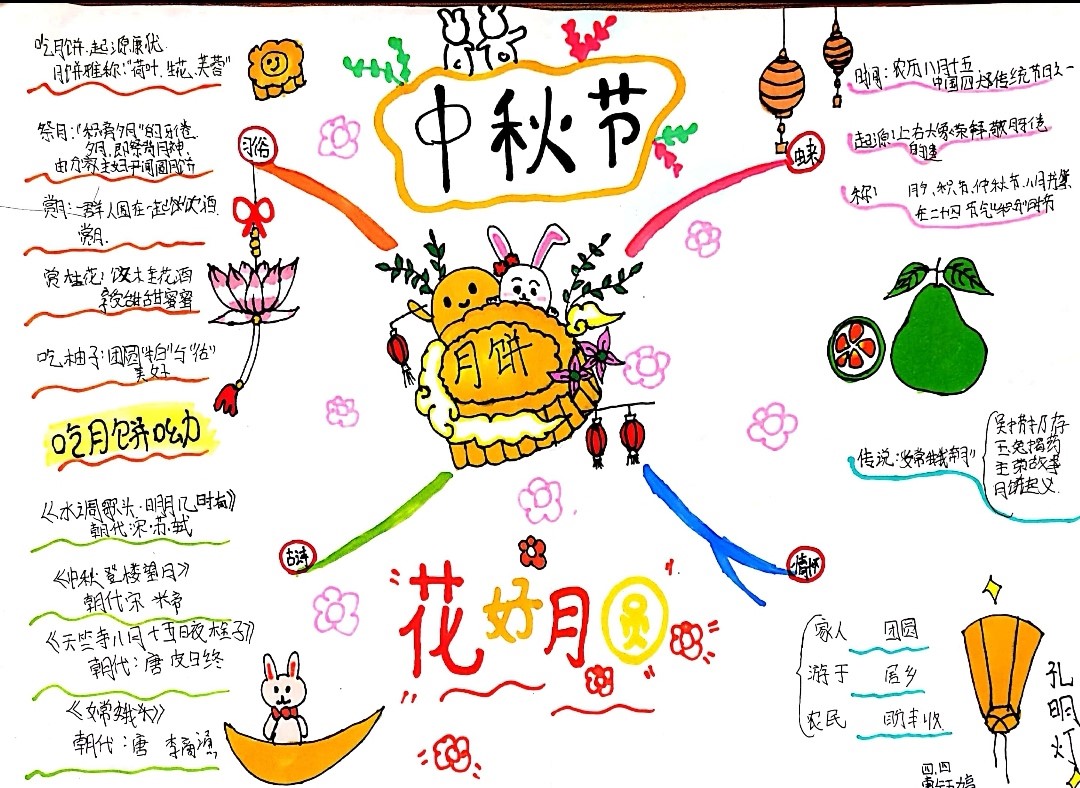 中秋节
习俗
吃月饼:起源唐代
月饼雅称:"荷叶、生花、芙蓉"
祭月:"秋暮夕月"的习俗
夕月,即祭拜月神
赏月:一群人围在一起饮酒
赏月
赏桂花:饮木圭花酒
甜甜蜜蜜
吃柚子:团圆
美好
吃月饼呦
月饼
时间:农历八月十五
中国四大传统节日之一
起源:上古
称:
月夕、秋节、仲秋节、八月节
在二十四节气"秋分"时节
传说:"嫦娥奔月"
玉兔捣药
故事
月饼起义
古诗
《水调歌头·明月几时有》
朝代宋·苏轼
《中秋登楼望月》
朝代宋 米芾
《天竺寺八月十五日夜桂子》
朝代:唐 皮日休
《嫦娥》
朝代:唐 李商隐
花好月圆
情怀
家人 团圆
游子 思乡
农民 丰收
孔明灯
四.四